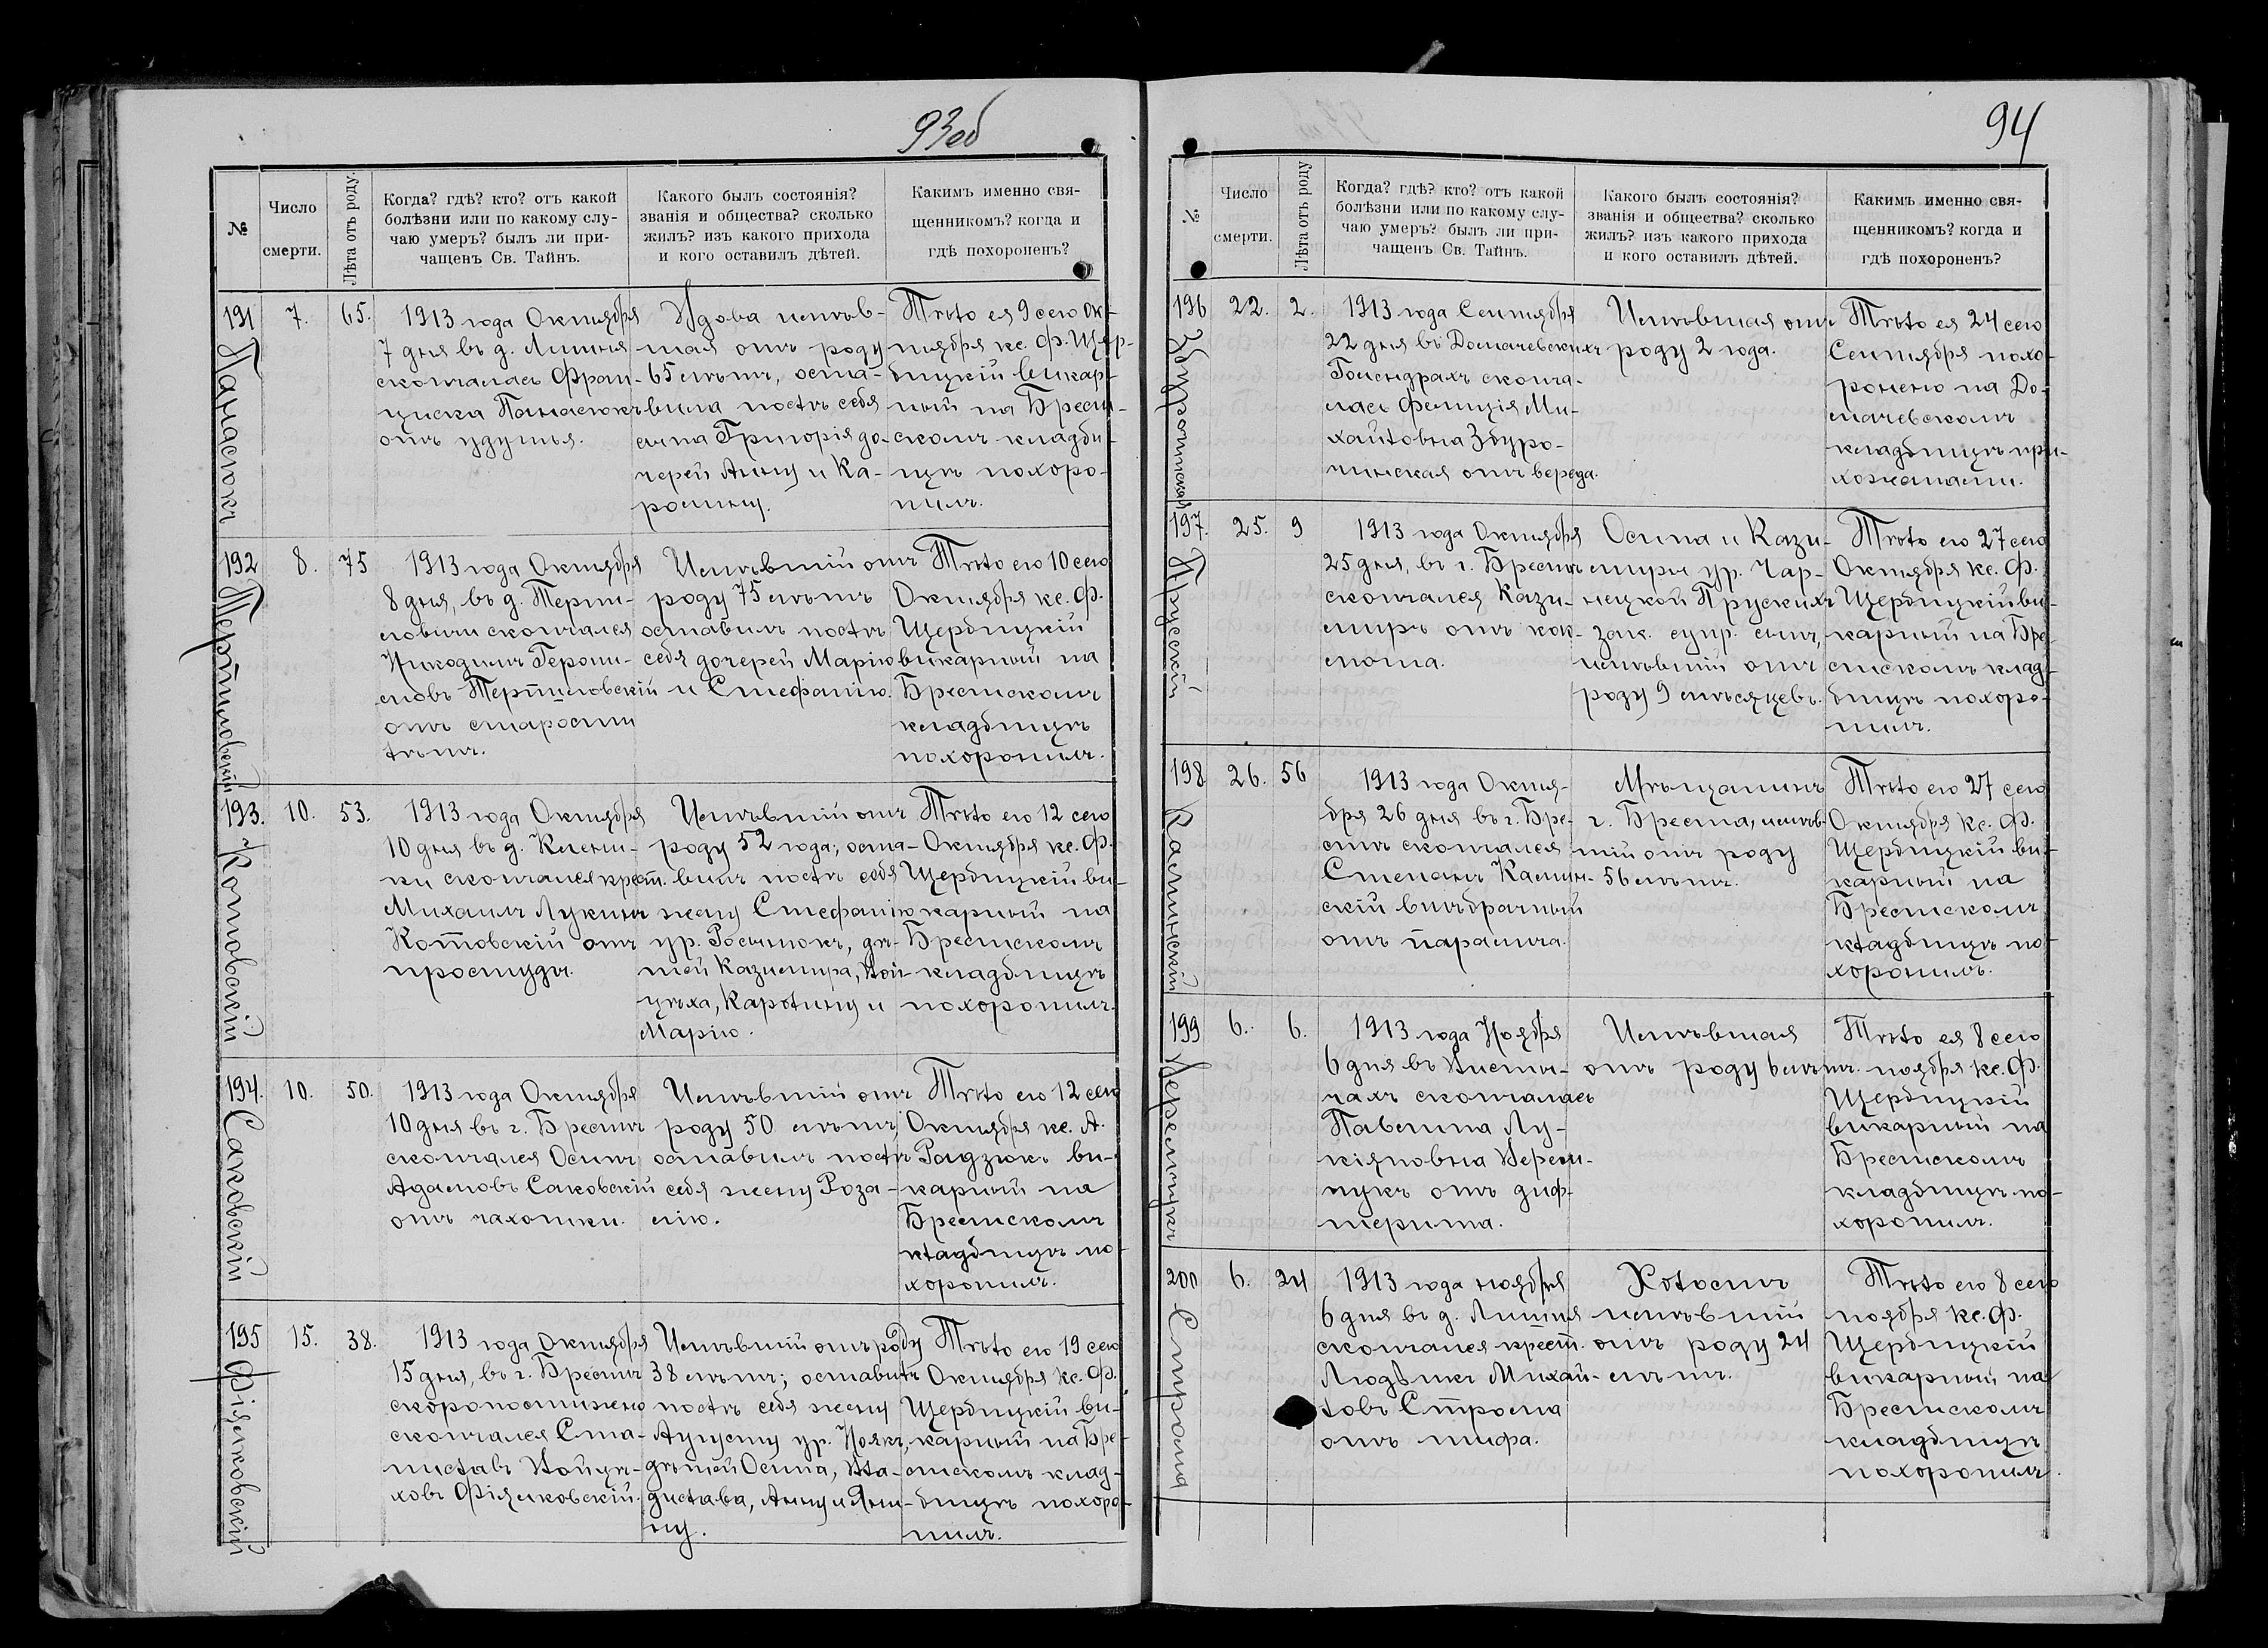 93об
№
Число
смерти.
Лѣта отъ роду.
Когда? гдѣ? кто? отъ какой
болѣзни или по какому слу-
чаю умеръ? былъ ли при-
чащенъ Св. Тайнъ.
Какого былъ состоянія?
званія и общества? сколько
жилъ? изъ какого прихода
и кого оставилъ дѣтей.
Какимъ именно свя-
щенникомъ? когда и
гдѣ похороненъ?
191
Панасюкъ
7.
65.
1913 года Октября
7 дня въ д. Литня
скончалась Фран-
циска Панасюкъ
отъ удушья.
Вдова имѣв-
шая отъ роду
65 лѣтъ, оста-
вила послѣ себя
сына Григорія до-
черей Анну и Ка-
ролину.
Тѣло ея 9 сего Ок-
тября кс. Ф. Щер-
бицкій викар-
ный на Брест-
скомъ кладби-
щѣ похоро-
нилъ.
192
Терпиловскій
8.
75
1913 года Октября
8 дня, въ д. Терпи-
ловичи скончался
Никодимъ Герони-
мовъ Терпиловскій
отъ старости
лѣтъ.
Имѣвшій отъ
роду 75 лѣтъ
оставилъ послѣ
себя дочерей Марію
и Стефанію.
Тѣло его 10 сего
Октября кс. Ф.
Щербицкій
викарный на
Брестскомъ
кладбищѣ
похоронилъ.
193.
Котовскій
10.
53.
1913 года Октября
10 дня въ д. Клени-
ки скончался крест.
Михаилъ Лукинъ
Котовскій отъ
простуды.
Имѣвшій отъ
роду 52 года; оста-
вилъ послѣ себя
жену Стефанію
ур. Росинюкъ, дѣ-
тей Казимира, Вой-
цѣха, Каролину и
Марію.
Тѣло его 12 сего
Октября кс. Ф.
Щербицкій ви-
карный на
Брестскомъ
кладбищѣ
похоронилъ.
194.
Саковскій
10.
50.
1913 года Октября
10 дня въ г. Брестѣ
скончался Осипъ
Адамовъ Саковскій
отъ чахотки.
Имѣвшій отъ
роду 50 лѣтъ,
оставилъ послѣ
себя жену Роза-
лію.
Тѣло его 12 сего
Октября кс. А.
Радзюкъ ви-
карный на
Брестскомъ
кладбищѣ по-
хоронилъ.
195
Фіялковскій
15.
38.
1913 года Октября
15 дня, въ г. Брестѣ
скоропостижно
скончался Ста-
ниславъ Войцѣ-
ховъ Фіялковскій.
Имѣвшій отъ роду
38 лѣтъ; оставилъ
послѣ себя жену
Августу ур. Новкъ,
дѣтей Осипа, Вла-
дислава, Анну и Яни-
ну.
Тѣло его 19 сего
Октября кс. Ф.
Щербицкій ви-
карный на Бре-
стскомъ клад-
бищѣ похоро-
нилъ.
94
№
Число
смерти.
Лѣта отъ роду
Когда? гдѣ? кто? отъ какой
болѣзни или по какому слу-
чаю умеръ? былъ ли при-
чащенъ Св. Тайнъ.
Какого былъ состоянія?
званія и общества? сколько
жилъ? изъ какого прихода
и кого оставилъ дѣтей.
Какимъ именно свя-
щенникомъ? когда и
гдѣ похороненъ?
196
Здурочинская
22.
2.
1913 года Сентября
22 дня въ Домачевскихъ
Голендрахъ сконча-
лась Фелиція Ми-
хайловна Збуро-
чинская отъ вереда.
Имѣвшая отъ
роду 2 года.
Тѣло ея 24 сего
Сентября похо-
ронено на До-
мачевскомъ
кладбищѣ при-
хожанами.
197.
Прускій
25.
9
1913 года Октября
25 дня, въ г. Брестѣ
скончался Кази-
миръ отъ кок-
люша.
Осипа и Кази-
миры ур. Чар-
нецкой Прускихъ
зак. супр. сынъ,
имѣвшій отъ
роду 9 мѣсяцевъ.
Тѣло его 27 сего
Октября кс. Ф.
Щербицкій ви-
карный на Бре-
стскомъ клад-
бищѣ похоро-
нилъ.
198
Каминскій
26.
56
1913 года Октя-
бря 26 дня въ г. Бре-
стѣ скончался
Степанъ Камин-
скій внѣбрачный
отъ паралича.
Мѣщанинъ
г. Бреста, имѣв-
шій отъ роду
56 лѣтъ.
Тѣло его 27 сего
Октября кс. Ф.
Щербицкій ви-
карный на
Брестскомъ
кладбищѣ по-
хоронилъ.
199
Веремчукъ
6.
6.
1913 года Ноября
6 дня въ Высты-
чахъ скончалась
Павлина Лу-
кіяновна Верем-
чукъ отъ диф-
терита.
Имѣвшая
отъ роду 6 лѣтъ.
Тѣло ея 8 сего
ноября кс. Ф.
Щербицкій
викарный на
Брестскомъ
кладбищѣ по-
хоронилъ.
200
Строма
6.
24
1913 года ноября
6 дня въ д. Литня
скончался крест.
Людвикъ Михай-
ловъ Строма
отъ тифа.
Холостъ
имѣвшій
отъ роду 24
лѣтъ.
Тѣло его 8 сего
ноября кс. Ф.
Щербицкій
викарный на
Брестскомъ
кладбищѣ
похоронилъ.